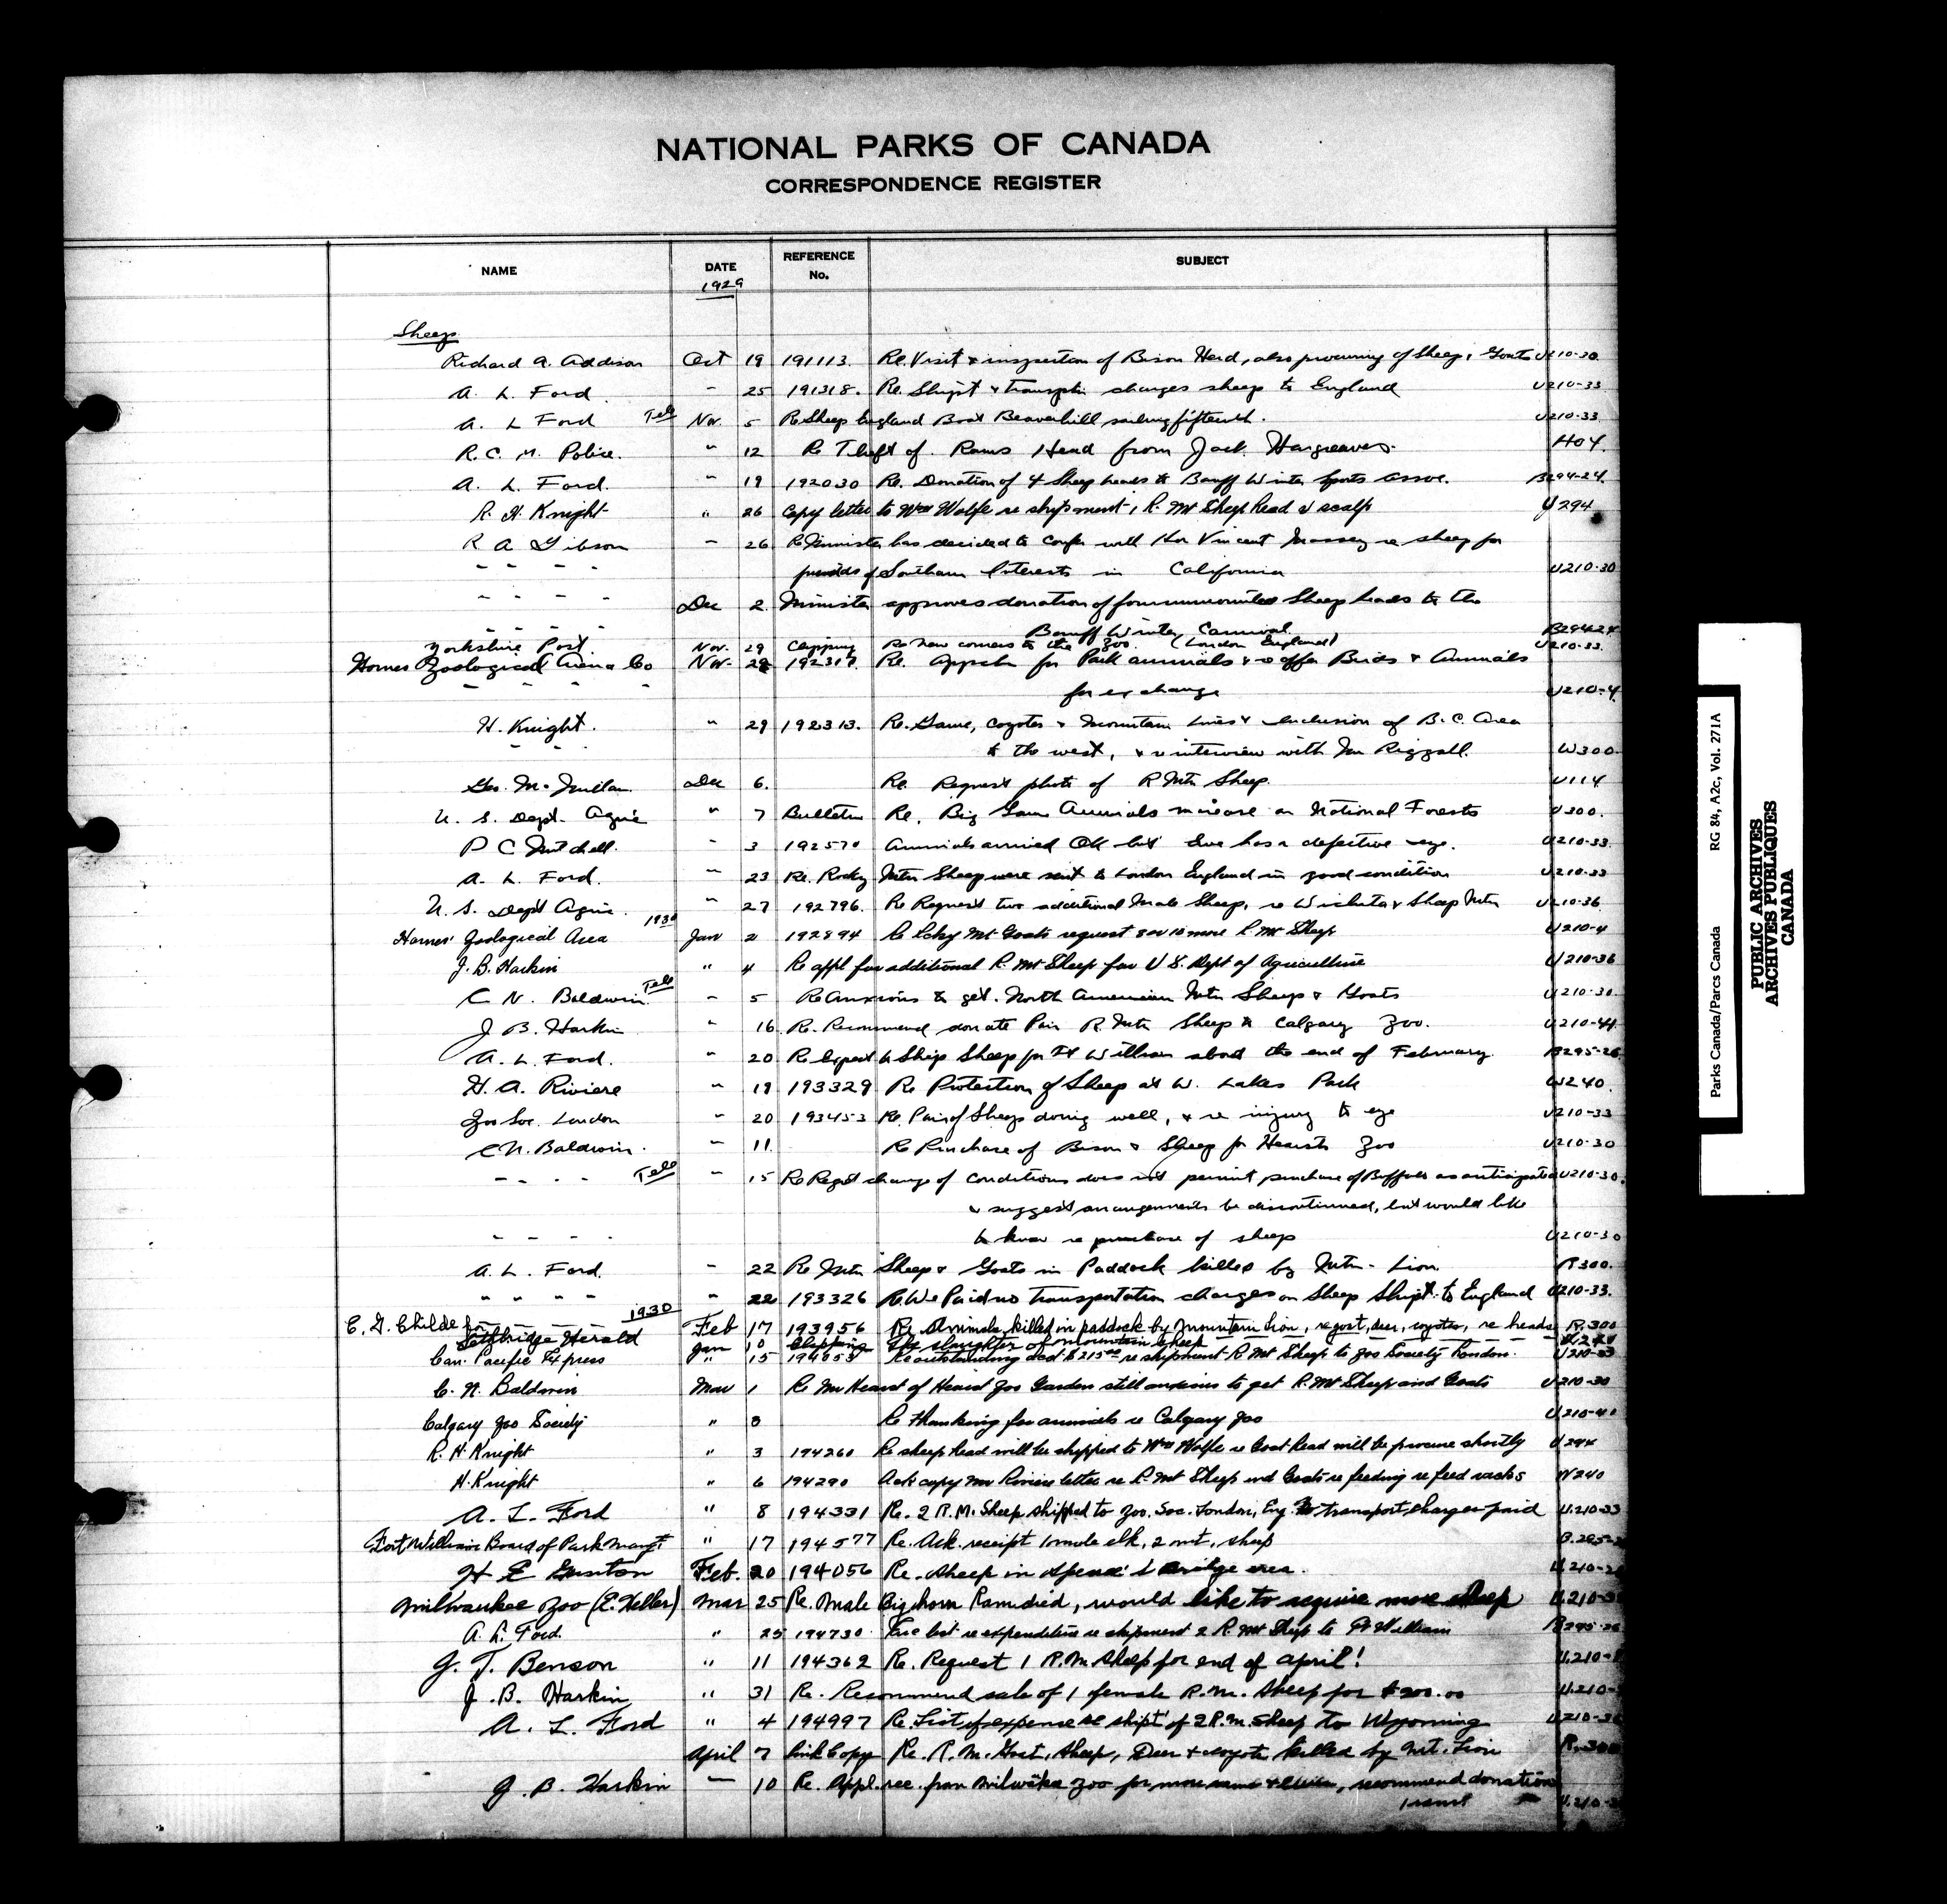 NATIONAL PARKS OF CANADA
CORRESPONDENCE REGISTER
NAME DATE REFERENCE No. SUBJECT
1929
Sheep
Richard A. Addison Oct 19 191113. Re. Visit & inspection of Bison Herd, also procuring of Sheep, Goats U210-30
A. L. Ford. " 25 191318. Re. Shipt & transptn charges sheep to England U210-33
A. L Ford Tele Nov. 5 Re Sheep England Boat Beaverhill sailing fifteenth. U210-33.
R. C. M. Police. " 12 Re Theft of. Rams Head from Jack Hargreaves. H04.
A. L. Ford. " 19 192030 Re. Donation of 4 Sheep heads to Banff Winter Sports Assoc. B294-24.
R. H. Knight " 26 Copy letter to Wm Wolfe re shipment 1 R. Mt Sheep Head & scalp U294
R A Gibson " 26 Re Minister has decided to confer with Hon Vincent Massey re sheep for
" " " " of Southern Interests in California U210-30
" " " " Dec 2. Minister approves donation of four unmounted Sheep heads to the
" " " " Banff Winter Carnival. B294-24
Yorkshire Post. Nov. 29 Clipping Re New comers to the Zoo. (London England) U210-33.
Hornes Zoological Arena Co Nov. 28 192317. Re. Appctn for Park animals & re offer Birds & Animals
" " " " for exchange U210-4.
H. Knight. " 29 192313. Re. Game, Coyotes & Mountain Lions & inclusion of B. C. Area
" " " to the west, & re interview with Mr Riggall. W300.
Geo. McMillan. Dec 6. Re. Request photo of R Mtn Sheep. U114
U. S. Dept. Agric " 7 Bulletin Re. Big Game Animals increase on National Forests U300.
P C Mitchell. " 3 192570 Animals arrived OK but Ewe has a defective eye. U210-33.
A. L. Ford. " 23 Re. Rocky Mtn Sheep were sent to London England in good condition U210-33
U. S. Dept Agric. " 27 192796. Re Request two additional Male Sheep, re Wichita & Sheep Mtn U210-36.
1930
Hornes' Zoological Area Jan 2 192894 Re Rcky Mt Goats request 8 or 10 more R. Mt Sheep U210-4
J. B. Harkin " 4 Re appl for additional R. Mt Sheep for U.S. Dept of Agriculture U210-36
C N. Baldwin Tele " 5 Re Anxious to get. North American Mtn Sheep & Goats U210-30.
J B. Harkin " 16. Re. Recommend donate Pair R. Mtn Sheep to Calgary Zoo. U210-44.
A. L. Ford. " 20 Re Expect to Ship Sheep for Ft William about the end of February. B295-26
H. A. Riviere " 19 193329 Re Protection of Sheep at W. Lakes Park W240.
Zoo Soc. London " 20 193453 Re. Pair of Sheep doing well, & re injury to eye U210-33
C N. Baldwin. " 11. Re Purchase of Bison & Sheep for Hearsts Zoo U210-30
" " " " Tele " 15 Re Regret change of conditions does not permit purchase of Buffalo as anticipated U210-30.
& suggest arrangements be discontinued, but would like
" " " " to know re purchase of sheep U210-30
A. L. Ford. " 22 Re Mtn Sheep & Goats in Paddock killed by Mtn. Lion R300.
" " " " " 22 193326 Re We Paid no Transportation charges on Sheep Shipt. to England U210-33.
1930
C. G. Childe for Feb 17 193956 Re. Animals killed in paddock by mountain lion, re goat, deer, coyotes, re heads R.300
Lethbridge Herald Jan 10 Clipping The slaughter of mountain sheep
Can. Pacific Express " 15 194053 Re outstanding acct $215.00 re shipment R Mt Sheep to Zoo Society London. U210-33
C. N. Baldwin Mar 1 Re Mr Hearst of Hearst Zoo Garden still anxious to get R. Mt Sheep and Goats U210-30
Calgary Zoo Society " 8 Re thanking for animals re Calgary Zoo U.210-41
R. H. Knight " 3 194260 Re sheep head will be shipped to Wm Wolfe re Goat head will be procure shortly U294
H. Knight " 6 194290 Ack copy Mr Riviere letter re R. Mt Sheep and Goats re feeding re feed racks W240
A. L. Ford " 8 194331 Re. 2 R.M. Sheep shipped to Zoo. Soc. London, Eng. No transport. charges paid U.210-33
Fort William Board of Park Mangt " 17 194577 Re. Ack. receipt 1 male elk, 2 mt. sheep B.295-
H E Feb. 20 194056 Re. Sheep in area. U.210-
Milwaukee Zoo (E. Heller) Mar 25 Re. Male Bighorn Ram died, would like to acquire more sheep U.210-3
A. L. Ford. " 25 194730 re expenditure re shipment 2 R. Mt Sheep to Ft William B295-26
G. T. Benson " 11 194362 Re. Request 1 R.M. Sheep for end of April! U.210-
J. B. Harkin " 31 Re. Recommend sale of 1 female R.M. Sheep for $200.00 U.210-
A. L. Ford " 4 194997 Re. List of expense re shipt of 2 R.M. Sheep to Wyoming U.210-36
April 7 Pink Copy Re. R.M. Goat, Sheep, Deer & coyote killed by Mt. Lion R.300
J. B. Harkin " 10 Re. Appl. rec. from Milwakee Zoo for more rams & ewes, recommend donation
1 ram U.210-3
Parks Canada/Parcs Canada RG 84, A2c, Vol. 271A
PUBLIC ARCHIVES
ARCHIVES PUBLIQUES
CANADA